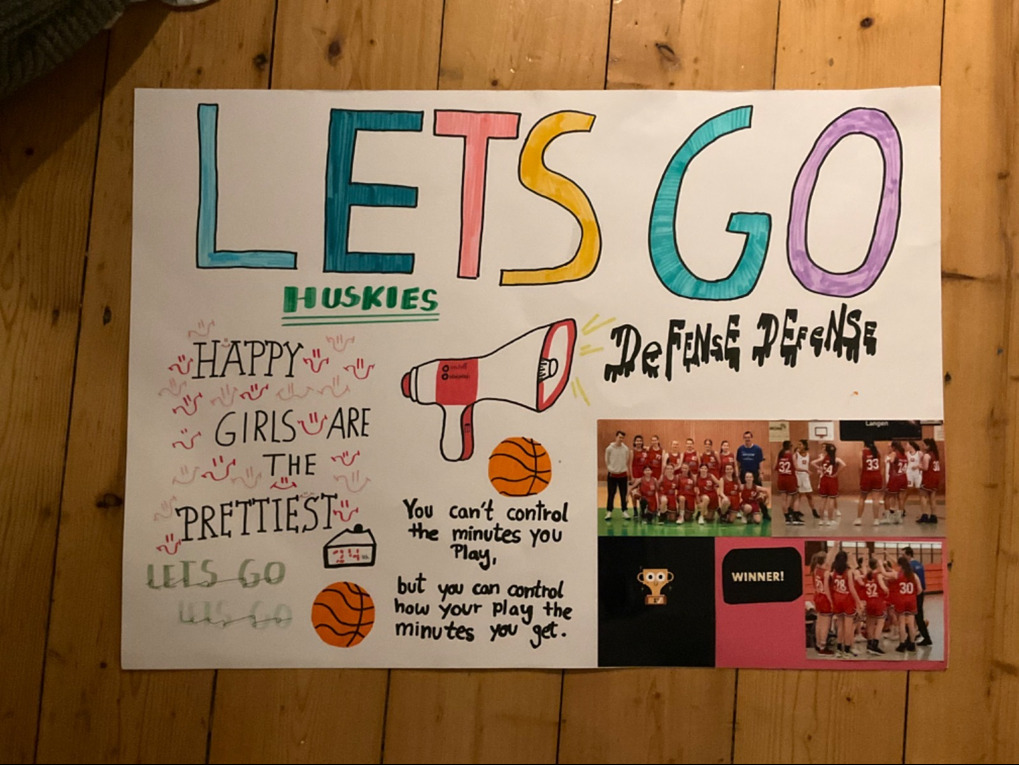 LETS GO
HUSKIES
DeFENSE DEFeNSE
HAPPY
GIRLS ARE
THE
PRETTIEST
LETS GO
LETS GO
You can't control
the minutes you
Play,
but you can control
how your play the
minutes you get.
Langen
32
54
33
24
WINNER!
28
32
30